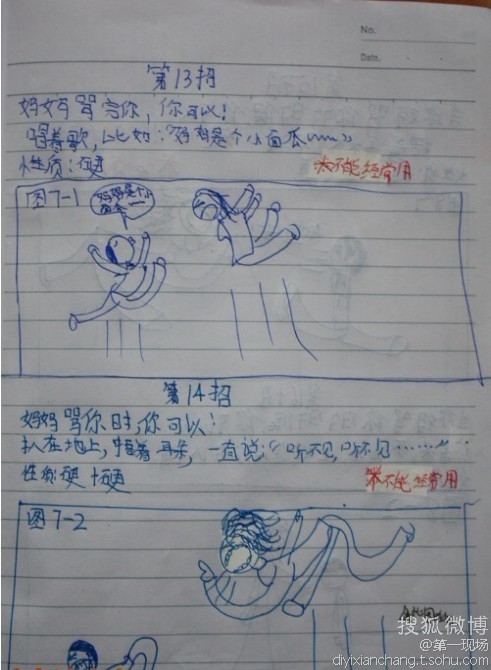 No.
Date.
第13招
妈妈骂完你，你可以！
唱着歌，比如：“妈妈是个小面瓜~~~”
性质：硬
不能经常用
图7-1
妈妈是个小
面瓜
第14招
妈妈骂你时，你可以！
趴在地上，捂着耳朵，一直说：“听不见，听不见……”
性质硬+硬
不能经常用
图7-2
搜狐微博
@第一现场
diyixianchang.t.sohu.com